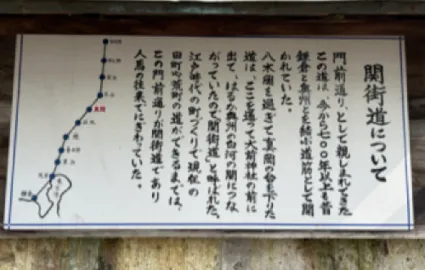 関街道について
門前通り、として親しまれてきた
この道は、今から七〇〇年以上も昔
鎌倉と奥州とを結ぶ道筋として開
かれていた。
八木岡を過ぎて真岡の台を下りた
道は、ここを通って大前神社の前に
出て、はるか奥州の白河の関につな
がっていたので「関街道」と呼ばれた。
江戸時代の町づくりで現在の
田町や荒町の道ができるまでは、
この門前通りが関街道であり
人馬の往来でにぎわっていた。
真岡
鎌倉